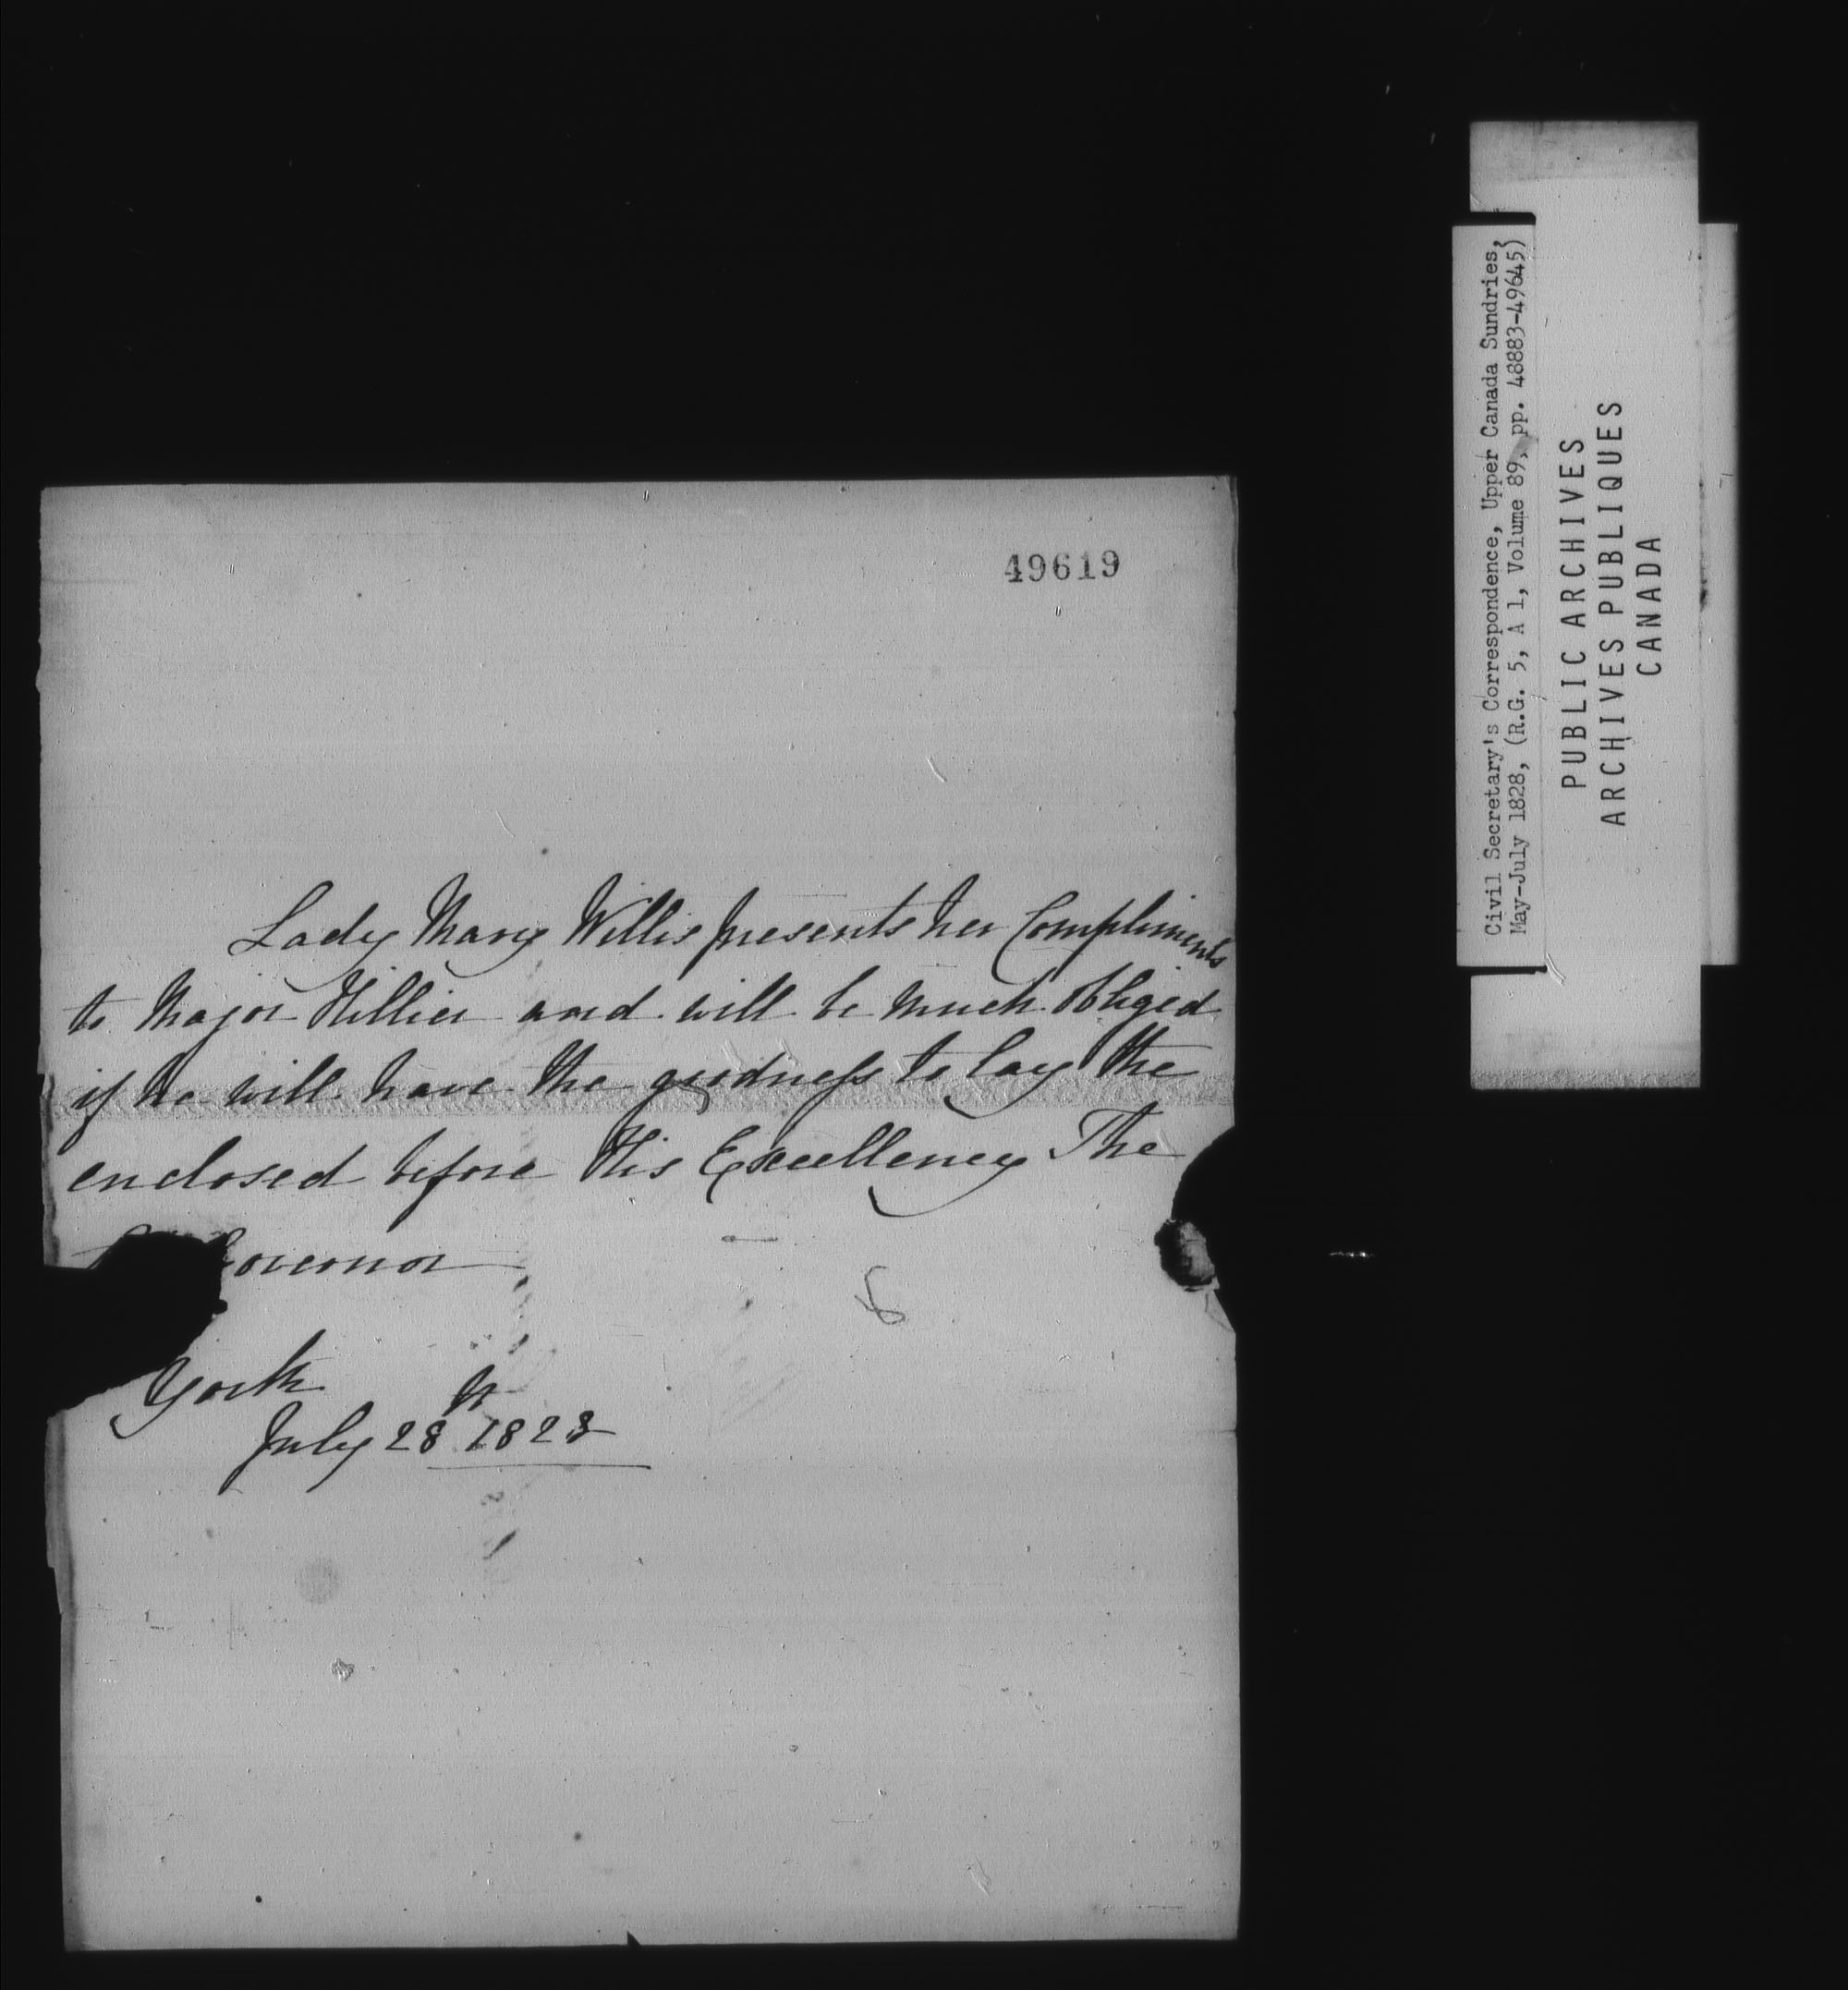 49619
Lady Mary Willis presents her Compliments
to Major Hillier and will be much obliged
if he will have the goodness to lay the
enclosed before His Excellency The
Governor
York
July 28th 1828
Civil Secretary's Correspondence, Upper Canada Sundries,
May-July 1828, (R.G. 5, A 1, Volume 89, pp. 48883-49645)
PUBLIC ARCHIVES
ARCHIVES PUBLIQUES
CANADA